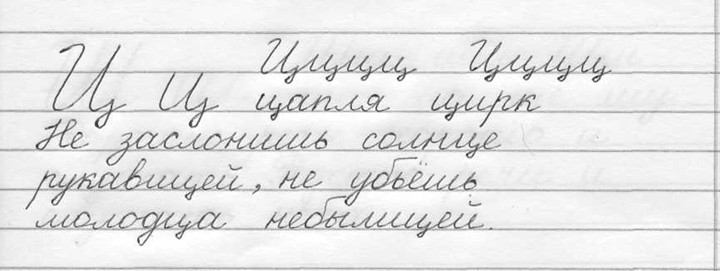 Цццц Цццц
Ц Ц цапля цирк
Не заслонишь солнце
рукавицей, не убьёшь
молодца небылицей.